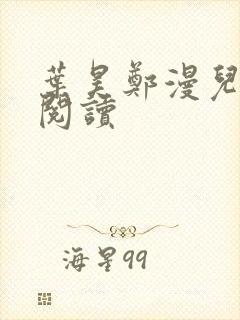 葉昊鄭漫兒
閱讀
海星99